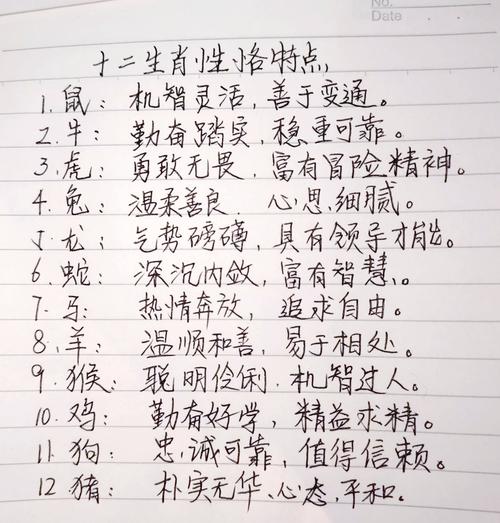 No.
Date
十二生肖性格特点
1.鼠：机智灵活，善于变通。
2.牛：勤奋踏实，稳重可靠。
3.虎：勇敢无畏，富有冒险精神。
4.兔：温柔善良 心思细腻。
5.龙：气势磅礴，具有领导才能。
6.蛇：深沉内敛，富有智慧。
7.马：热情奔放，追求自由。
8.羊：温顺和善，易于相处。
9.猴：聪明伶俐.机智过人。
10.鸡：勤奋好学，精益求精。
11.狗：忠诚可靠，值得信赖。
12.猪：朴实无华、心态平和。